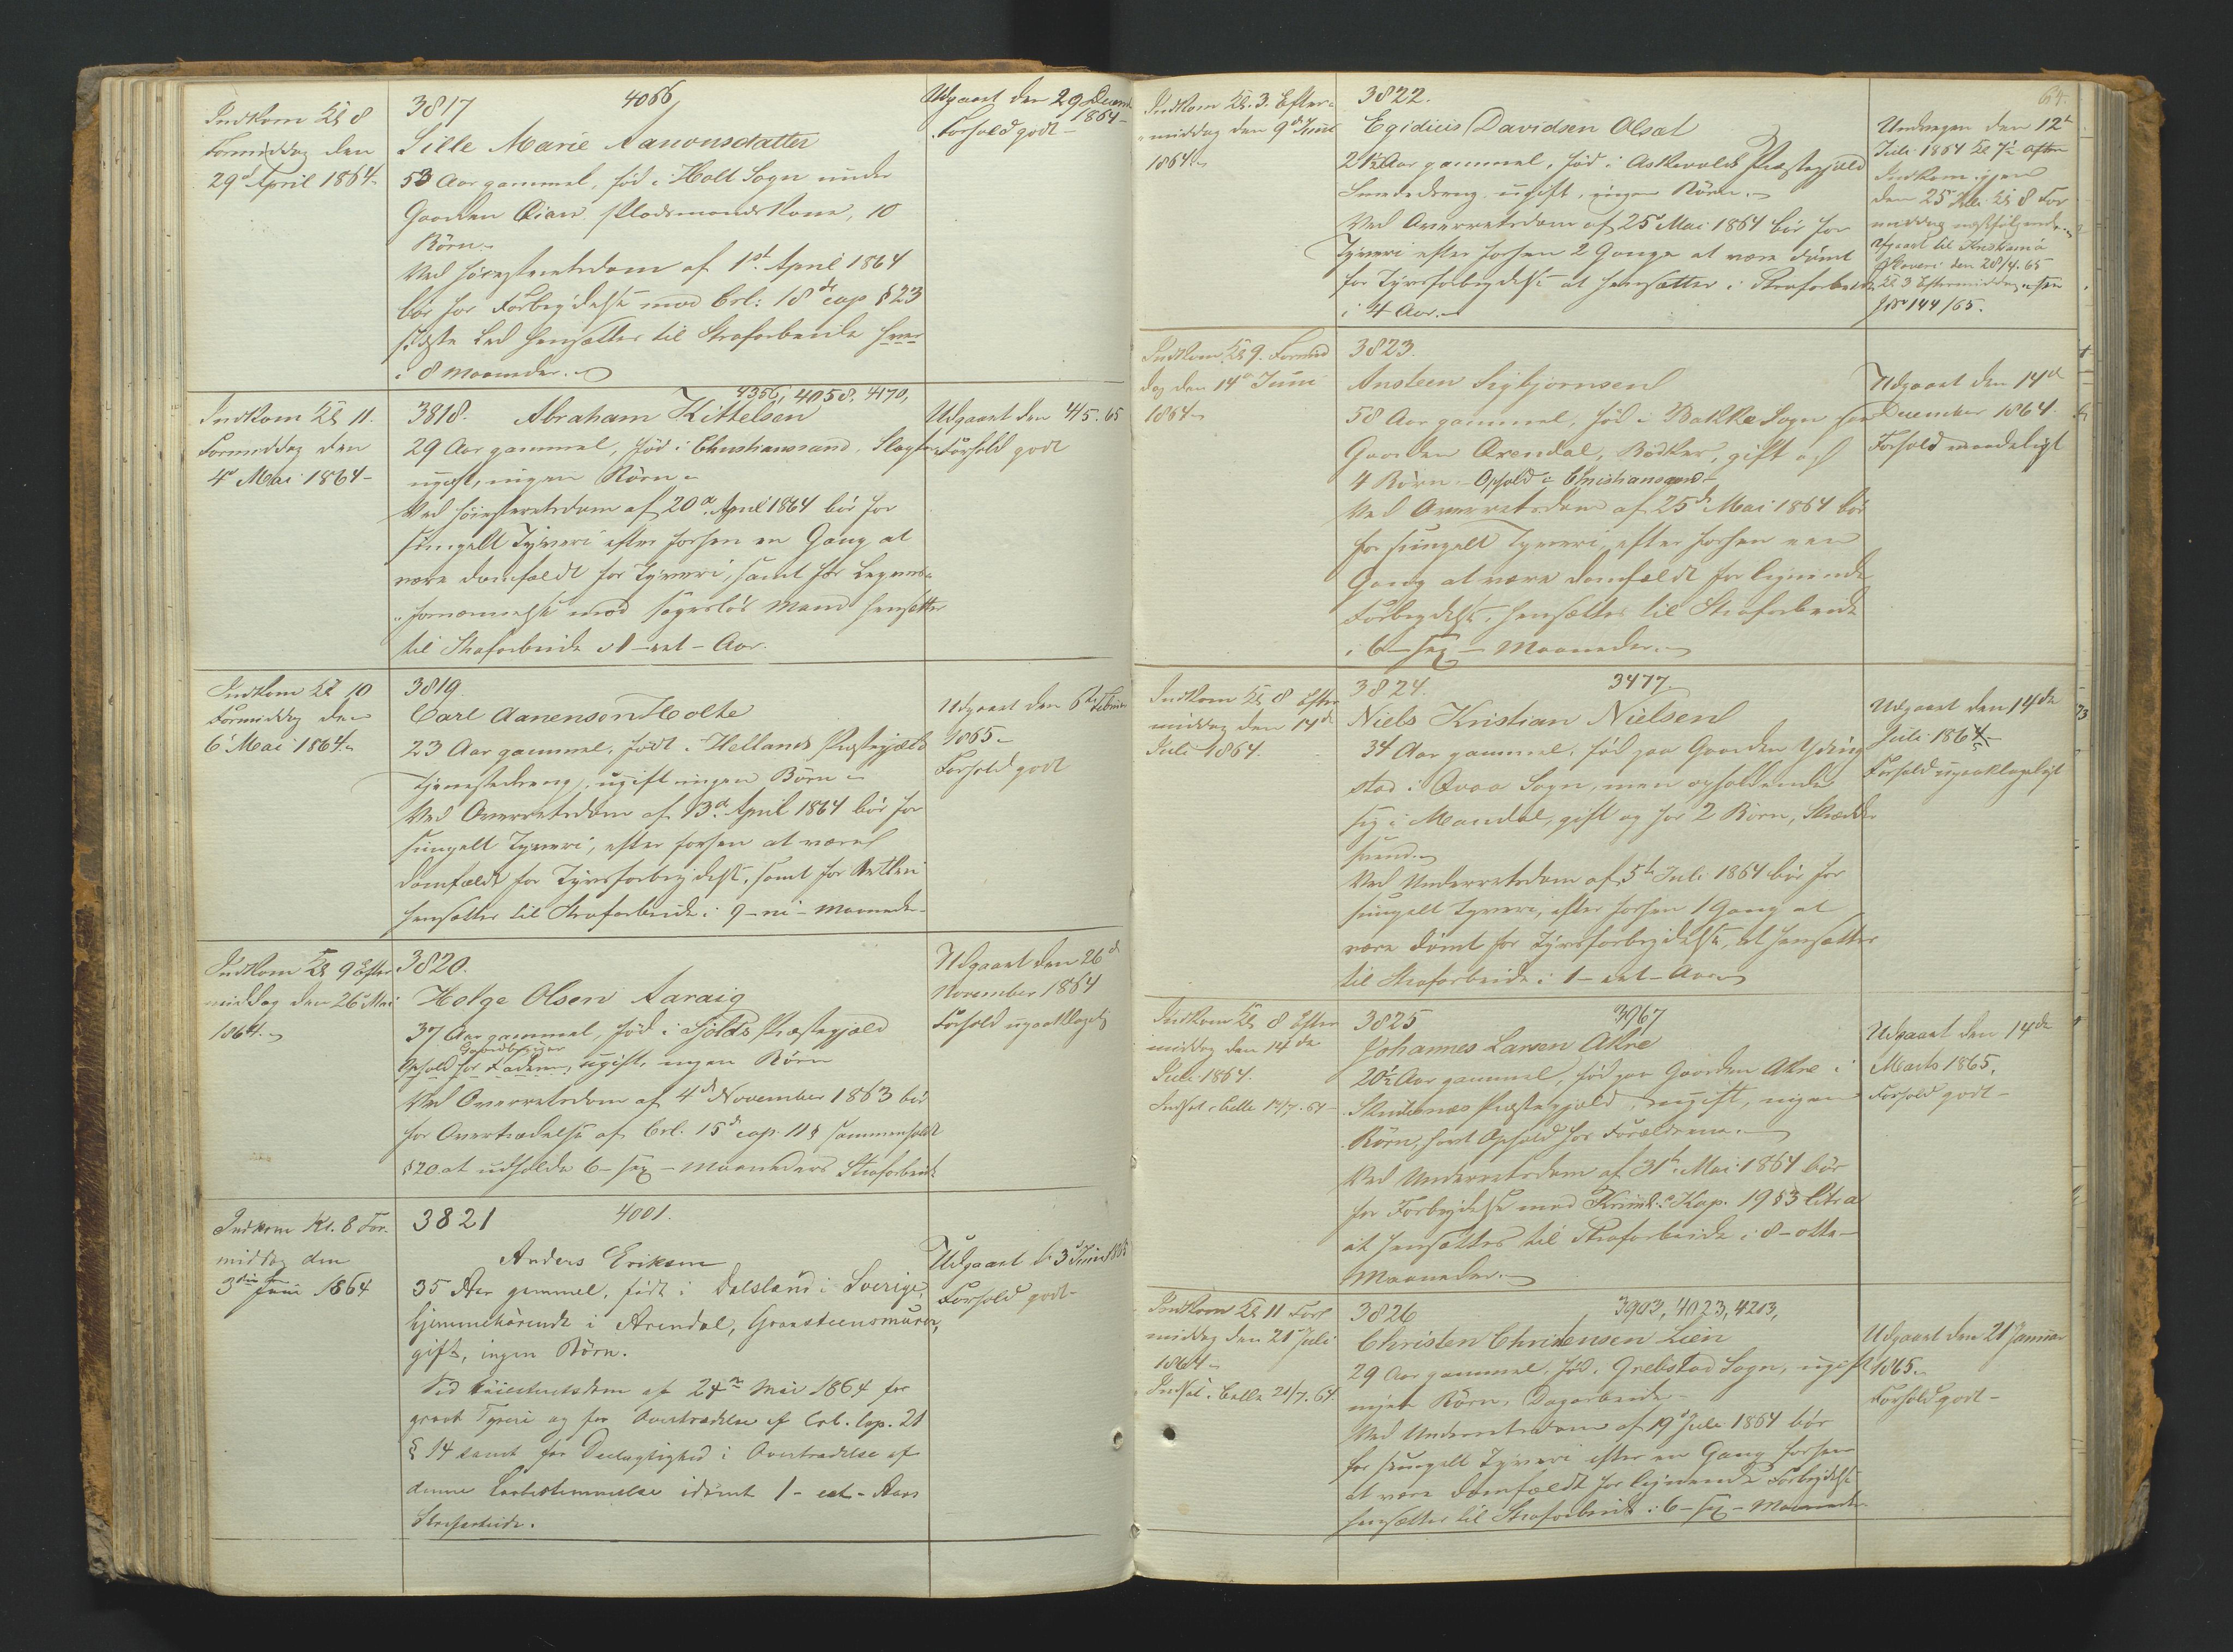 Indkom Kl 8
Formiddag den
29d April 1864.
3817
4066
Sille Marie Aanonsdatter
53 Aar gammel, född i Holt Sogn under
Gaarden Qian. Pladsmandskone, 10
Börn.
Ved Höiesteretsdom af 1st April 1864
bör for Forbrydelse mod Crl: 18de cap §23
sidste Led hensættes til Strafarbeide
i 8 Maaneder.
Udgaaet den 29 Decemb
1864
Forhold godt
Indkom Kl 11.
Formiddag den
4d Mai 1864
4356, 4058, 4170,
3818. Abraham Kittelsen
29 Aar gammel, född i Christianssand, Slagter
ugift, ingen Börn
Ved Höiesteretsdom af 20d April 1864 bör for
simpelt Tyveri efter forhen en Gang at
være domfældt for Tyveri, samt for Legems-
fornærmelse mod sagesløs Mand hensættes
til Strafarbeide i 1 – eet – Aar.
Udgaaet den 4/5. 65
Forhold godt
Indkom Kl 10
Formiddag den
6 Mai 1864.
3819.
Carl Aanensen Holte
23 Aar gammel, född i Hellands Præstegjæld
Tjenestedreng, ugift ingen Börn
Ved Overretsdom af 13d April 1864 bör for
simpelt Tyveri, efter forhen at være
domfældt for Tyvsforbrydelse, samt for Betleri
hensættes til Strafarbeide i 9 – ni – Maaneder.
Udgaaet den 6te Februar
1865
Forhold godt
Indkom Kl 9 Efter
middag den 26d Mai
1864.
3820.
Helge Olsen Aaraig
37 Aar gammel, född i Sjolds Præstegjæld
Gaardbruger
Ophold for Faderen, ugift, ingen Börn
Ved Overretsdom af 4d November 1863 bör
for Overtrædelse af Crl. 15d cap. 11§ sammenholdt
§20 at udholde 6 – sex – Maaneders Strafarbeide
Udgaaet den 26d
November 1864
Forhold upaaklageligt
Indkom Kl. 8 For-
middag den
3die Juni 1864
3821
4001.
Anders Eriksen
35 Aar gammel, född i Dalsland i Sverige,
hjemmehörende i Arendal, Graasteensmurer,
gift, ingen Börn.
Ved Höiesteretsdom af 24de Mai 1864 for
grovt Tyveri og for Overtrædelse af Crl. Cap. 21
§ 14 samt for Deelagtighed i Overtrædelse af
denne Lovbestemmelse idömt 1 – eet – Aars
Strafarbeide.
Udgaaet d 3d Juni 1865
Forhold godt
Indkom Kl. 3. Efter-
middag den 9d Juni
1864
3822.
64.
Egidius Davidsen Olsæt
21½ Aar gammel, född i Askevolds Præstegjæld
ugift, ingen Börn.
Ved Overretsdom af 25d Mai 1864 bör for
Tyveri efter forhen 2 Gange at være dömt
for Tyvsforbrydelse at hensættes i Strafarbeide
i 4 Aar.
Undvegen den 12te
Juli 1864 Kl 7½ Aften
Indkom igjen
den 25 Juli Kl 8 For
middag næstfölgende
Afgaaet til
den 28/4. 65
Kl 3 Eftermiddag
J No 144/65.
Indkom Kl 9. Formid
dag den 14de Juni
1864
3823.
Ansteen Sigbjørnsen
58 Aar gammel, född i Bakke Sogn paa
Gaarden Ørendal, Bødker, gift og
4 Börn. Ophold i Christianssand
Ved Overretsdom af 25de Mai 1864 bör
for simpelt Tyveri, efter forhen een
Gang at være domfældt for lignende
Forbrydelse, hensættes til Strafarbeide
i 6 – sex – Maaneder.
Udgaaet den 14d
December 1864.
Forhold maadeligt
Indkom Kl 8 Efter
middag den 14de
Juli 1864.
3824.
3477.
Niels Kristian Nielsen
34 Aar gammel, född paa Gaarden
stad i Qvaa Sogn, men opholdende
sig i Mandal, gift og har 2 Börn, Skrædder
svend.
Ved Underretsdom af 5te Juli 1864 bör for
simpelt Tyveri, efter forhen 1 Gang at
være dömt for Tyvsforbrydelse, at hensættes
til Strafarbeide i 1 – eet – Aar
Udgaaet den 14de
Juli 186
Forhold upaaklageligt
Indkom Kl 8 Efter
middag den 14de
Juli 1864.
Indsat i Celle 14/7. 64
3825
3967
Johannes Larsen Akre
20½ Aar gammel, född paa Gaarden Akre i
Skudesnæs Præstegjæld, ugift, ingen
Börn, havt Ophold hos Forældrene.
Ved Underretsdom af 31te Mai 1864 bör
for Forbrydelse mod Kriml. Kap. 19 §3 litr a
at hensættes til Strafarbeide i 8 – otte –
Maaneder.
Udgaaet den 14de
Marts 1865.
Forhold godt
Indkom Kl 11 For
middag den 21de Juli
1864
Indsat i Celle 21/7. 64
3826
3903, 4023, 4213,
Christen Christensen Lien
29 Aar gammel, född i Grebstad Sogn, ugift
intet Börn, Dagarbeider
Ved Underretsdom af 19d Juli 1864 bör
for simpelt Tyveri efter en Gang forhen
at være domfældt for lignende Forbrydelse
hensættes til Strafarbeide i 6 – sex – Maaneder
Udgaaet den 21de Januar
1865.
Forhold godt